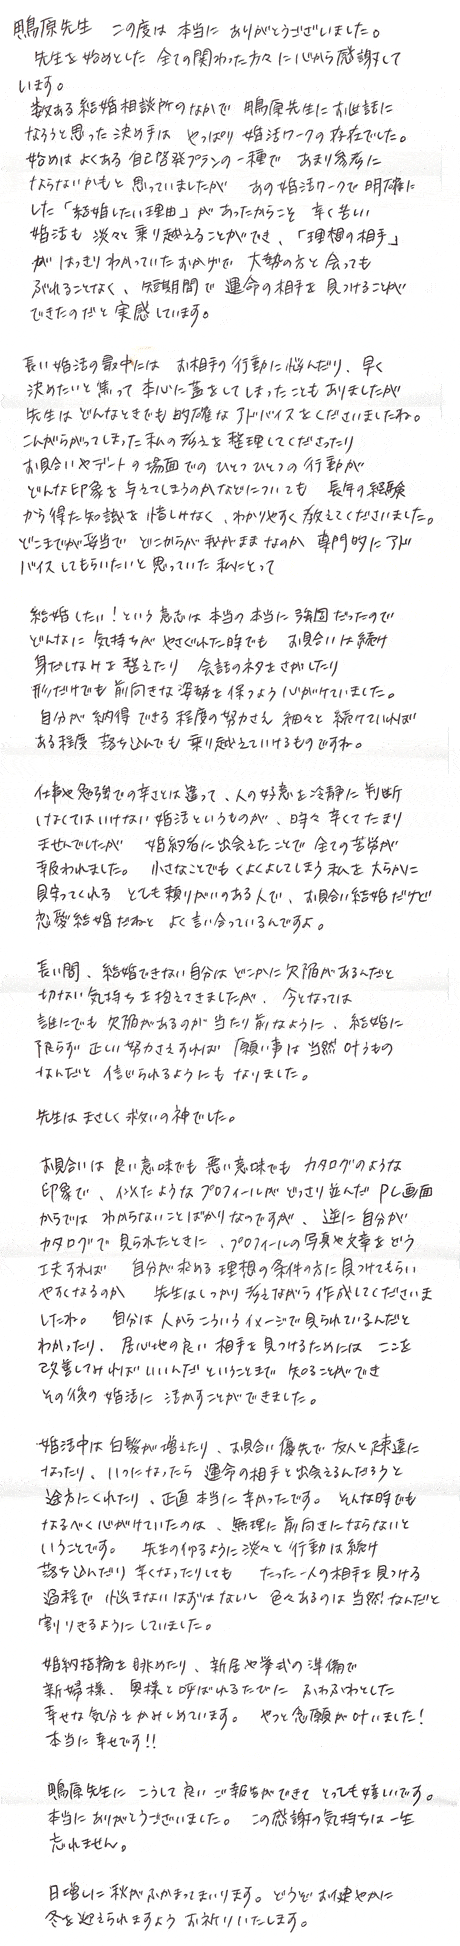 鴨原先生 この度は 本当に ありがとうございました。
先生を始めとした 全ての関わった方々に心から感謝して
います。
数ある結婚相談所のなかで 鴨原先生にお世話に
なろうと思った決め手は やっぱり 婚活ワークの存在でした。
始めは よくある 自己啓発プランの一種で あまり参考に
ならないかもと 思っていましたが あの婚活ワークで明確に
した「結婚したい理由」があったからこそ 辛く苦しい
婚活も 淡々と 乗り越えることができ、「理想の相手」
が はっきりわかっていたおかげで 大勢の方と会っても
ぶれることなく、短期間で 運命の相手を見つけることが
できたのだと 実感しています。
長い婚活の最中には お相手の行動に悩んだり、早く
決めたいと焦って 本心に蓋をしてしまったこともありましたが
先生は どんなときでも 的確な アドバイスをくださいましたね。
こんがらがってしまった 私の考えを 整理してくださったり
お見合いやデートの場面での ひとつひとつの行動が
どんな印象を与えてしまうのかなどについても 長年の経験
から得た知識を惜しみなく、わかりやすく 教えてくださいました。
どこまでが妥当で どこからが我がままなのか 専門的にアド
バイスしてもらいたいと思っていた 私にとって
結婚したい！という意志は本当の本当に強固だったので
どんなに 気持ちが やさぐれた時でも お見合いは続け
身だしなみを整えたり 会話のネタをさがしたり
形だけでも前向きな姿勢を保つよう心がけていました。
自分が 納得できる程度の努力さえ 細々と続けていれば
ある程度 落ち込んでも 乗り越えていけるものですね。
仕事や勉強での辛さとは違って、人の好意を冷静に判断
しなくてはいけない婚活というものが、時々辛くてたまり
ませんでしたが 婚約者に出会えたことで 全ての苦労が
報われました。 小さなことでもくよくよしてしまう私を大らかに
見守ってくれる とても頼りがいのある人で、お見合い結婚だけど
恋愛結婚だねと よく言い合っているんですよ。
長い間、結婚できない自分はどこかに欠陥があるんだと
切ない気持ちを抱えてきましたが、今となっては
誰にでも欠陥があるのが当たり前なように、結婚に
限らず 正しい努力さえすれば 願い事は当然叶うもの
なんだと 信じられるようにもなりました。
先生は まさしく 救いの神でした。
お見合いは 良い意味でも 悪い意味でも カタログのような
印象で、似たようなプロフィールが どっさり並んだ PC画面
からでは わからないことばかりなのですが、逆に自分が
カタログで見られたときに、プロフィールの写真や文章をどう
工夫すれば 自分が求める理想の条件の方に見つけてもらい
やすくなるのか 先生はしっかり考えながら作成してくださいま
したね。 自分は人からこういうイメージで見られているんだと
わかったり、居心地の良い 相手を見つけるためには ここを
改善してみればいいんだということまで 知ることができ
その後の婚活に 活かすことができました。
婚活中は白髪が増えたり、お見合い優先で友人と疎遠に
なったり、いつになったら 運命の相手と出会えるんだろうと
途方にくれたり、正直本当に辛かったです。 そんな時でも
なるべく心がけていたのは、無理に前向きにならないと
いうことです。 先生の仰るように淡々と 行動は続け
落ち込んだり辛くなったりしても たった一人の相手を見つける
過程で 悩まないはずはないし 色々あるのは当然なんだと
割りきるようにしていました。
婚約指輪を眺めたり、新居や挙式の準備で
新婦様、奥様と呼ばれるたびに ふわふわとした
幸せな気分をかみしめています。 やっと念願が叶いました！
本当に幸せです!!
鴨原先生に こうして良いご報告ができて とっても嬉しいです。
本当にありがとうございました。 この感謝の気持ちは一生
忘れません。
日増しに秋がふかまってまいります。どうぞお健やかに
冬を迎えられますよう お祈りいたします。